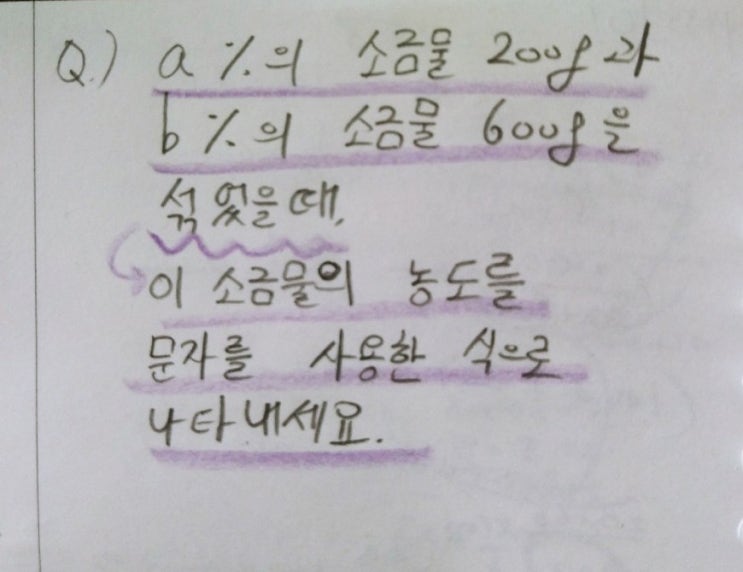 Q.) a %의 소금물 200g과
b %의 소금물 600g을
섞었을 때,
이 소금물의 농도를
문자를 사용한 식으로
나타내세요.